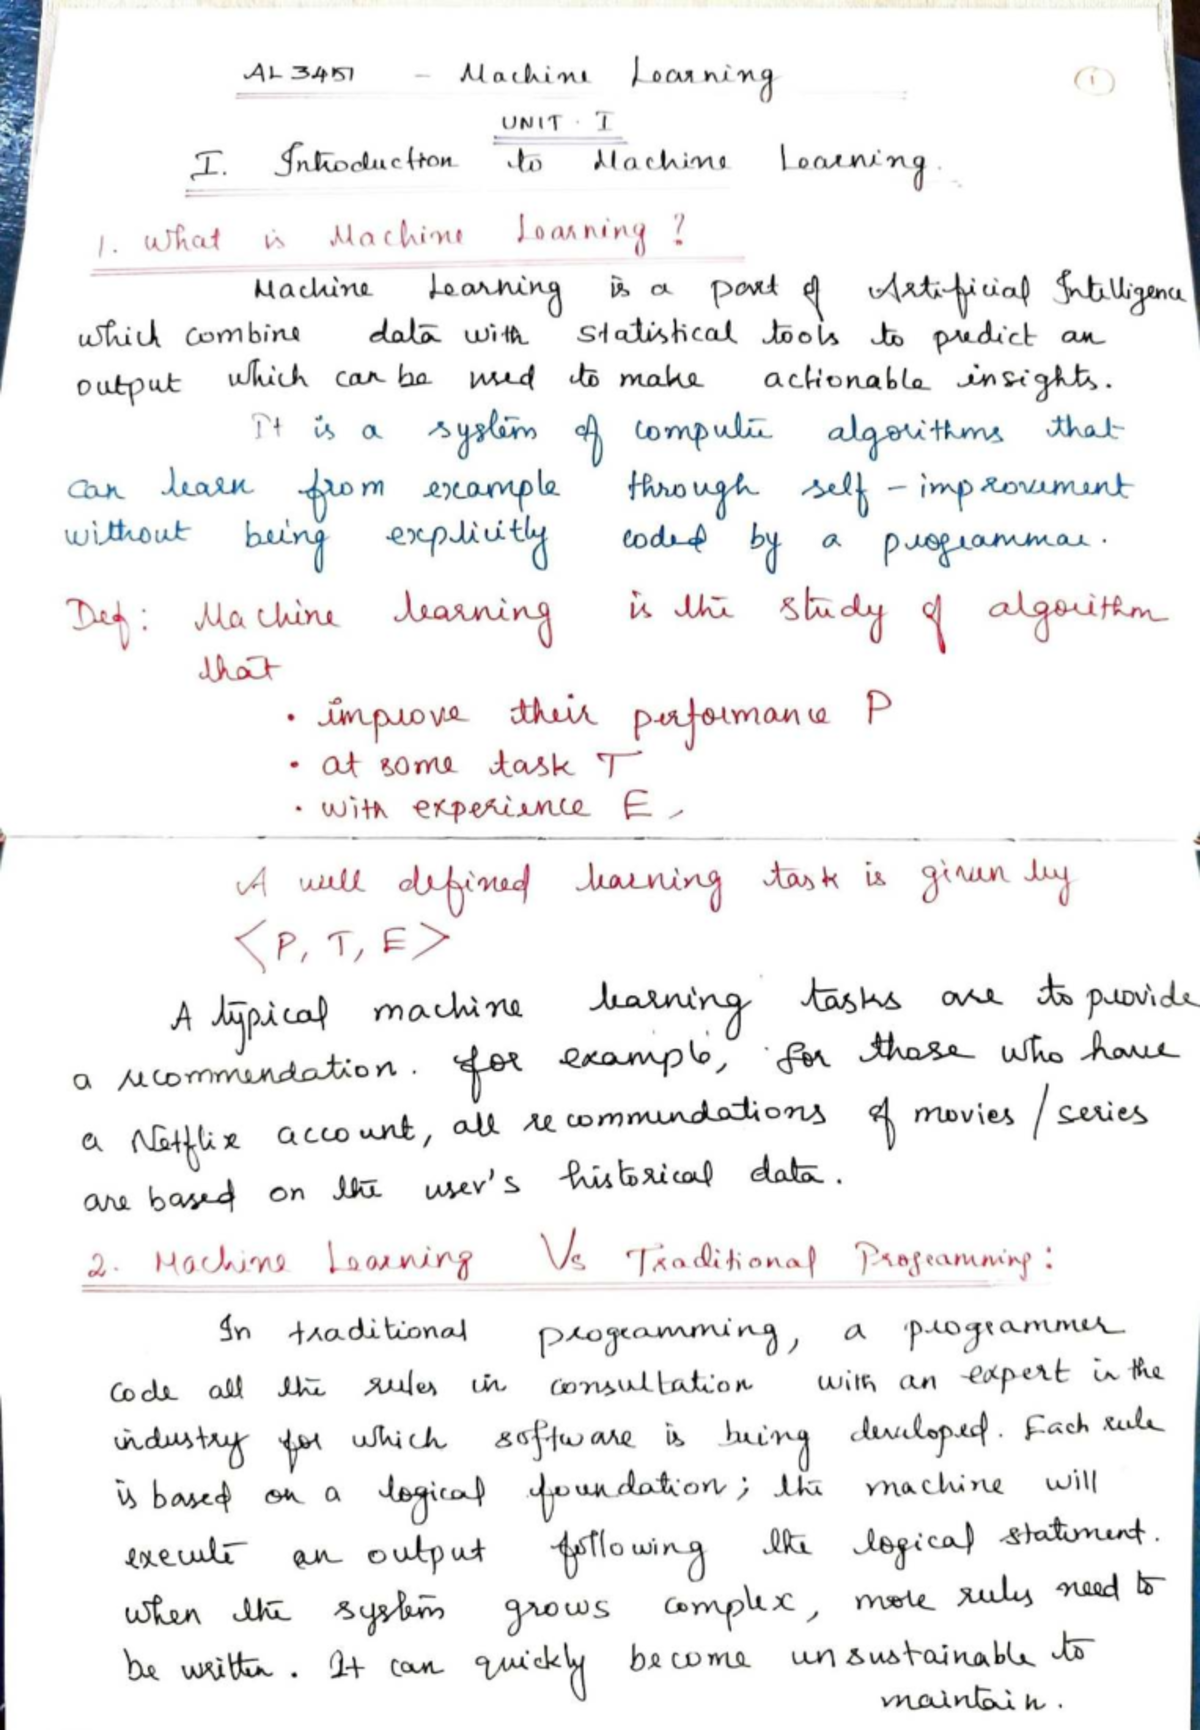 AL 3451 - Machine Learning
1
UNIT . I
I. Introduction to Machine Learning.
1. What is Machine Learning ?
Machine Learning is a part of Artificial Intelligence
which combine data with statistical tools to predict an
output which can be used to make actionable insights.
It is a system of computer algorithms that
can learn from example through self - improvement
without being explicitly coded by a programmar.
Def : Machine learning is the study of algorithm
that
• improve their performance P
• at some task T
• with experience E,
A well defined learning task is given by
<P, T, E>
A typical machine learning tasks are to provide
a recommendation. For example, for those who have
a Netflix account, all recommendations of movies / series
are based on the user's historical data.
2. Machine Learning Vs Traditional Programming :
In traditional programming, a programmer
code all the rules in consultation with an expert in the
industry for which software is being developed. Each rule
is based on a logical foundation ; the machine will
execute an output following the logical statement.
When the system grows complex, more rules need to
be written. It can quickly become unsustainable to
maintain.